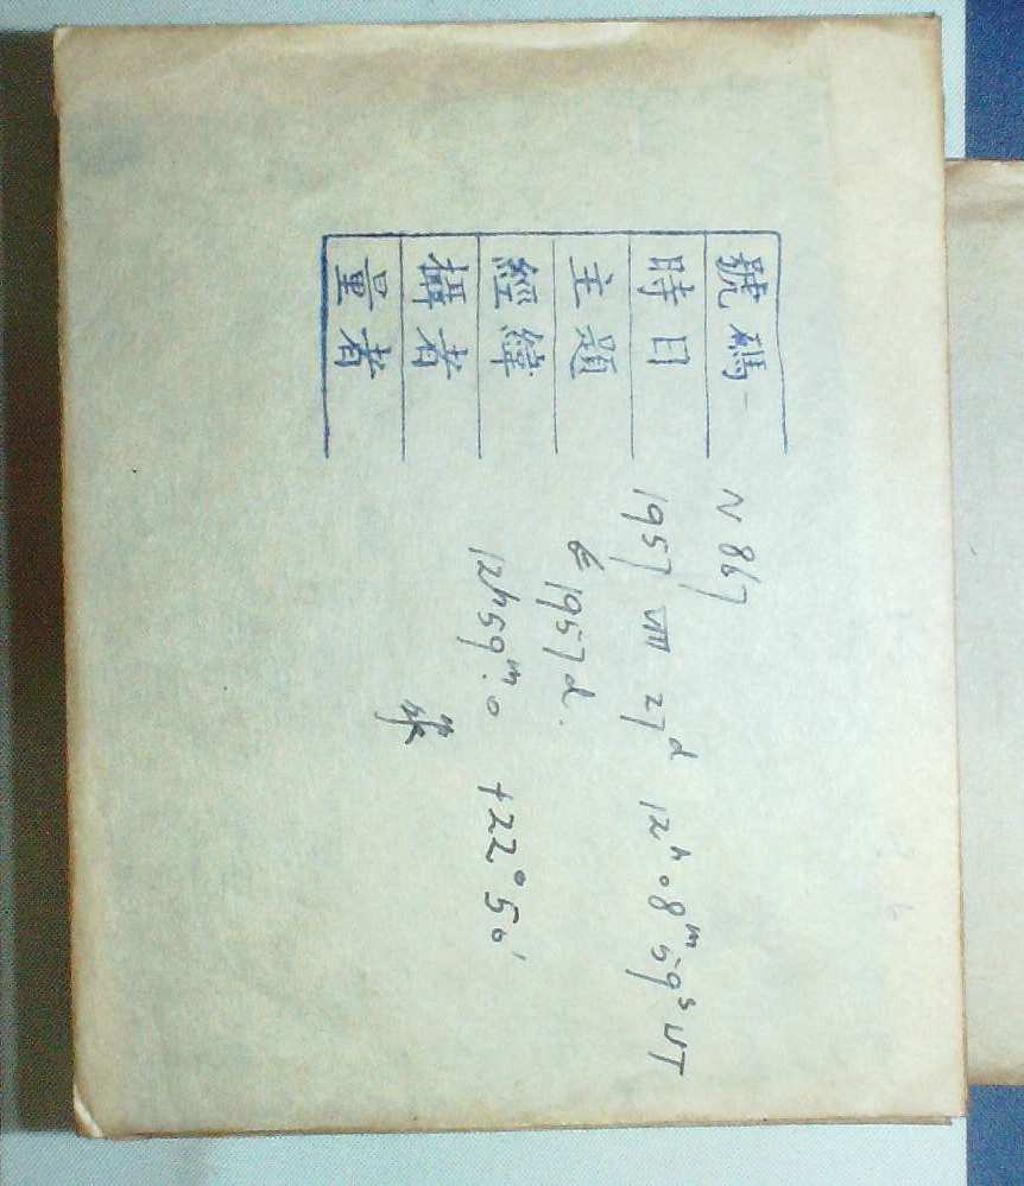 號碼 N 867
時日 1957 VIII 27d 12h 08m 59s UT
主題 1957d.
經緯 12h59m.0 +22°50'
攝者 张
量者